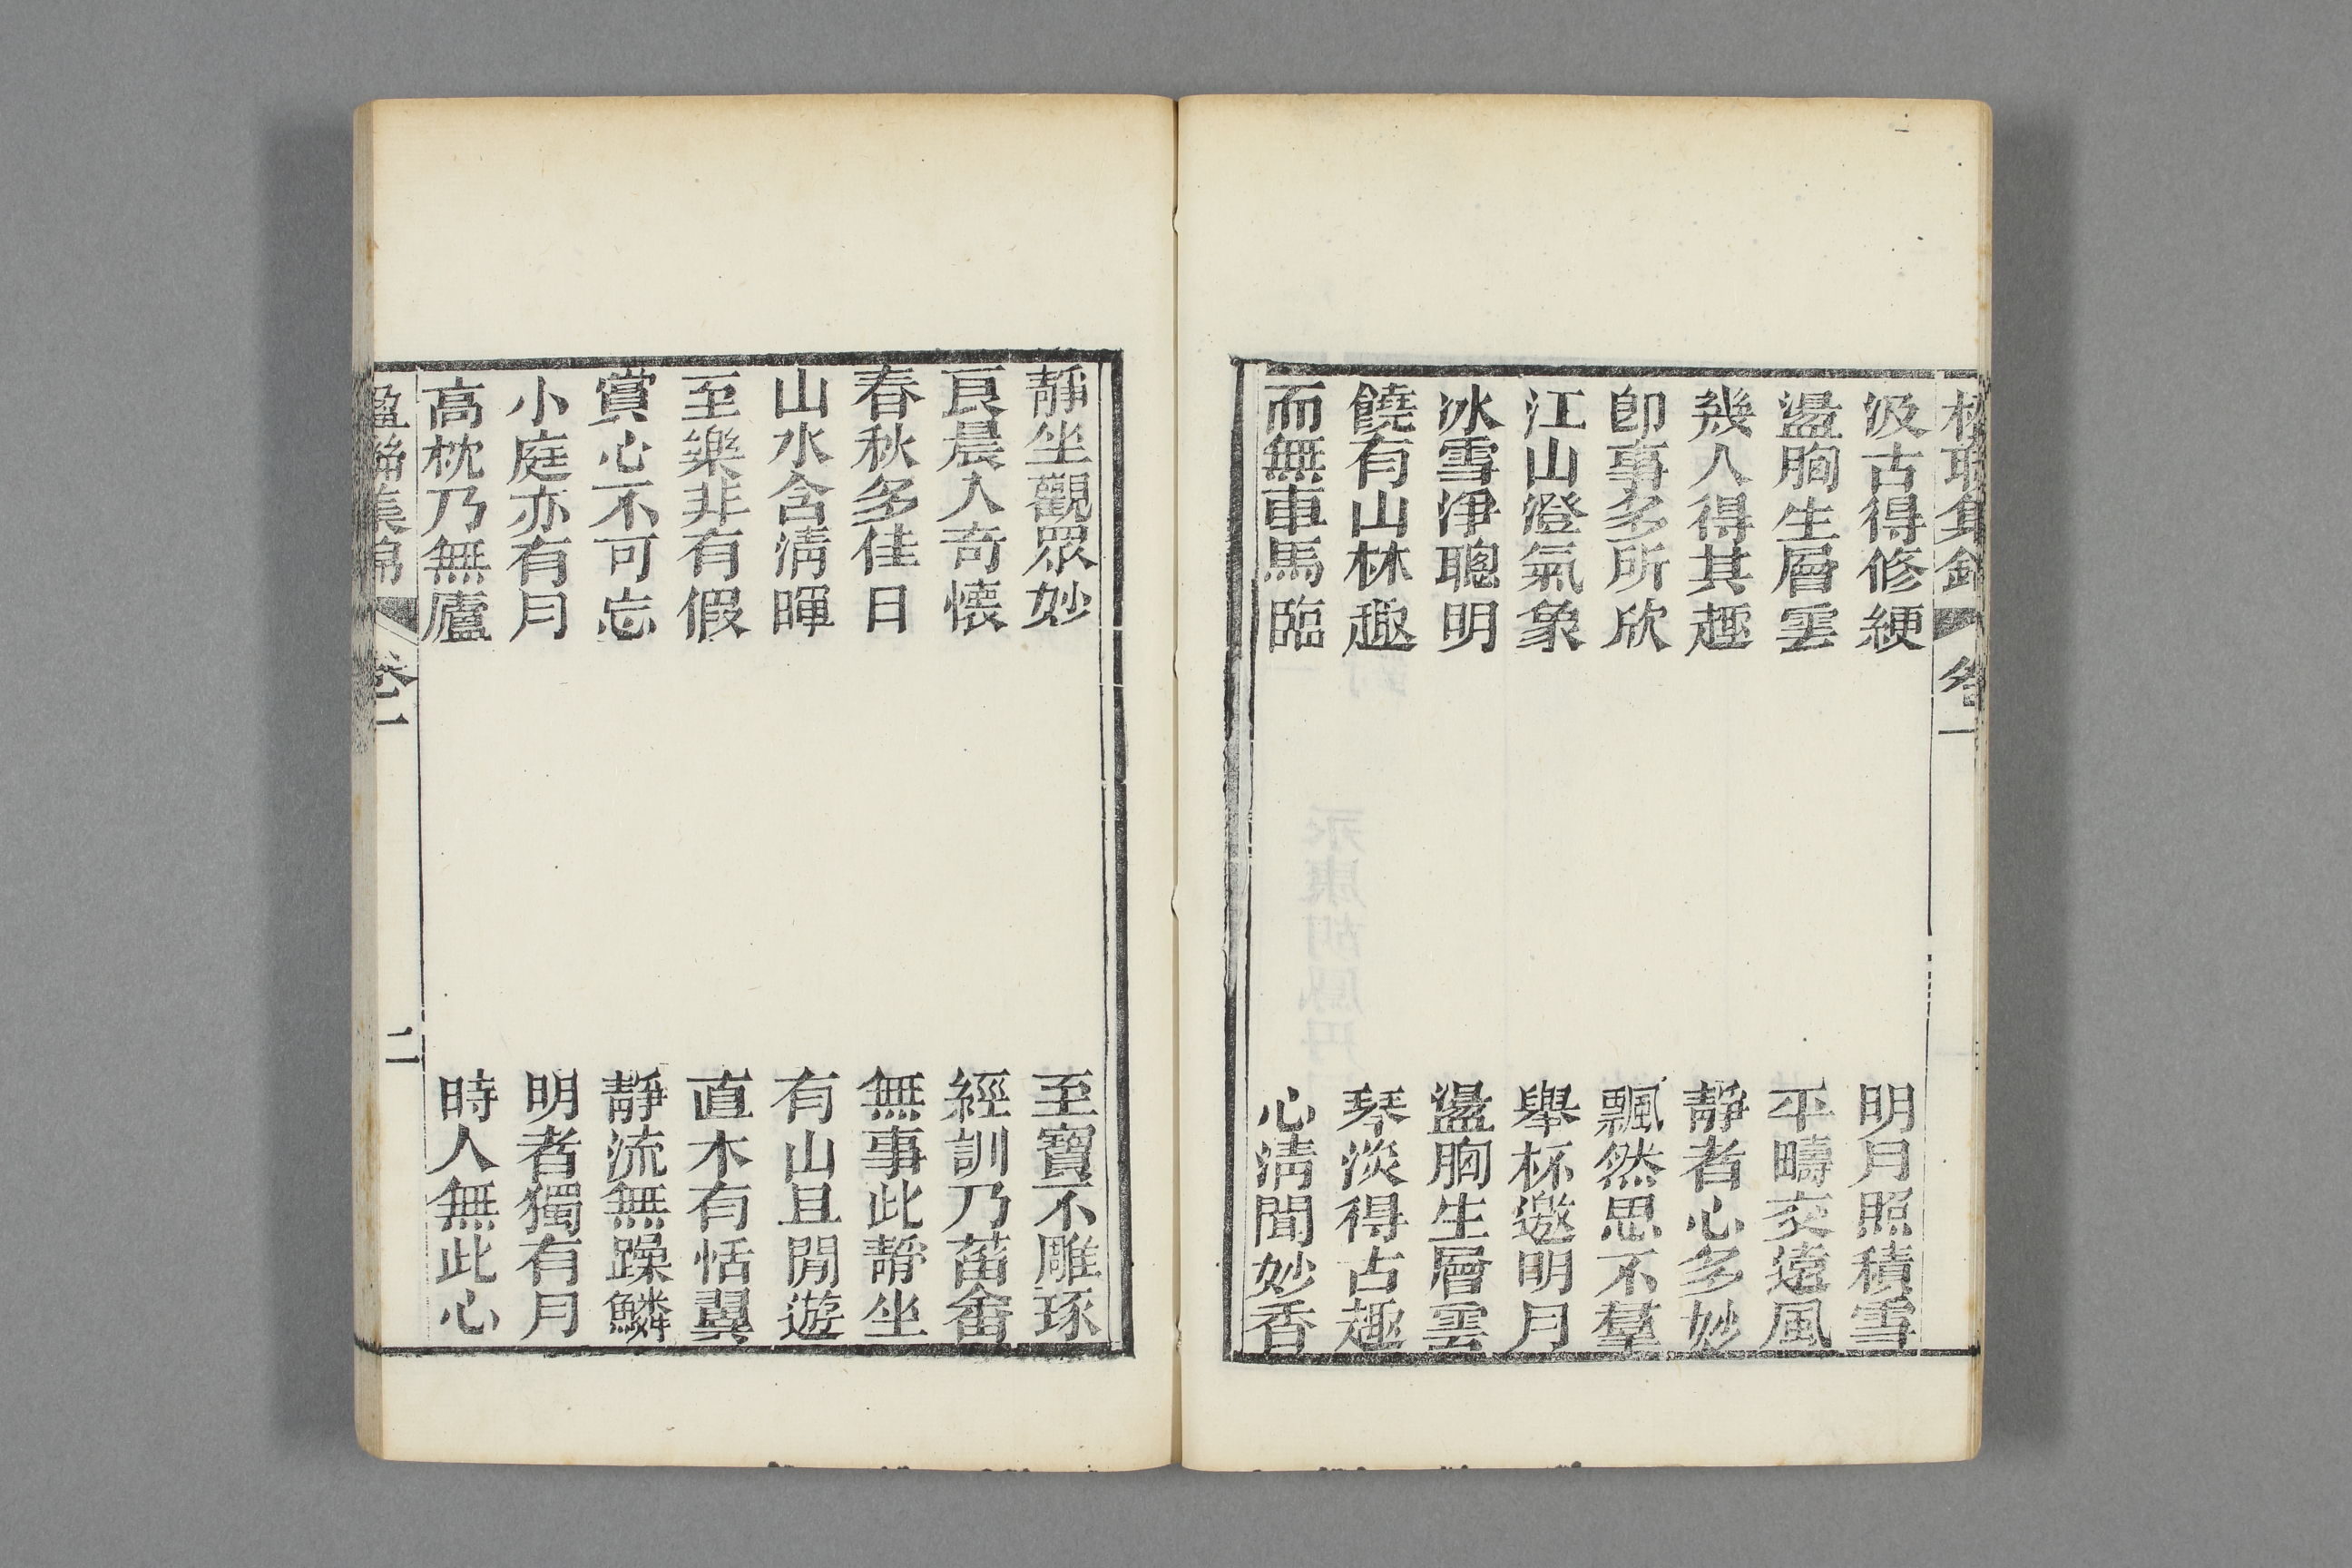 汲古得修綆　明月照積雪
盪胸生層雲　平疇交遠風
幾人得其趣　靜者心多妙
卽事多所欣　飄然思不羣
江山澄氣象　舉杯邀明月
冰雪淨聰明　盪胸生層雲
饒有山林趣　琴淡得古趣
而無車馬臨　心淸聞妙香
靜坐觀眾妙　至寶不雕琢
良晨入奇懷　經訓乃菑畬
春秋多佳日　無事此靜坐
山水含淸暉　有山且閒遊
至樂非有假　直木有恬翼
賞心不可忘　靜流無躁鱗
小庭亦有月　明者獨有月
高枕乃無廬　時人無此心
楹聯集錦　卷一　二